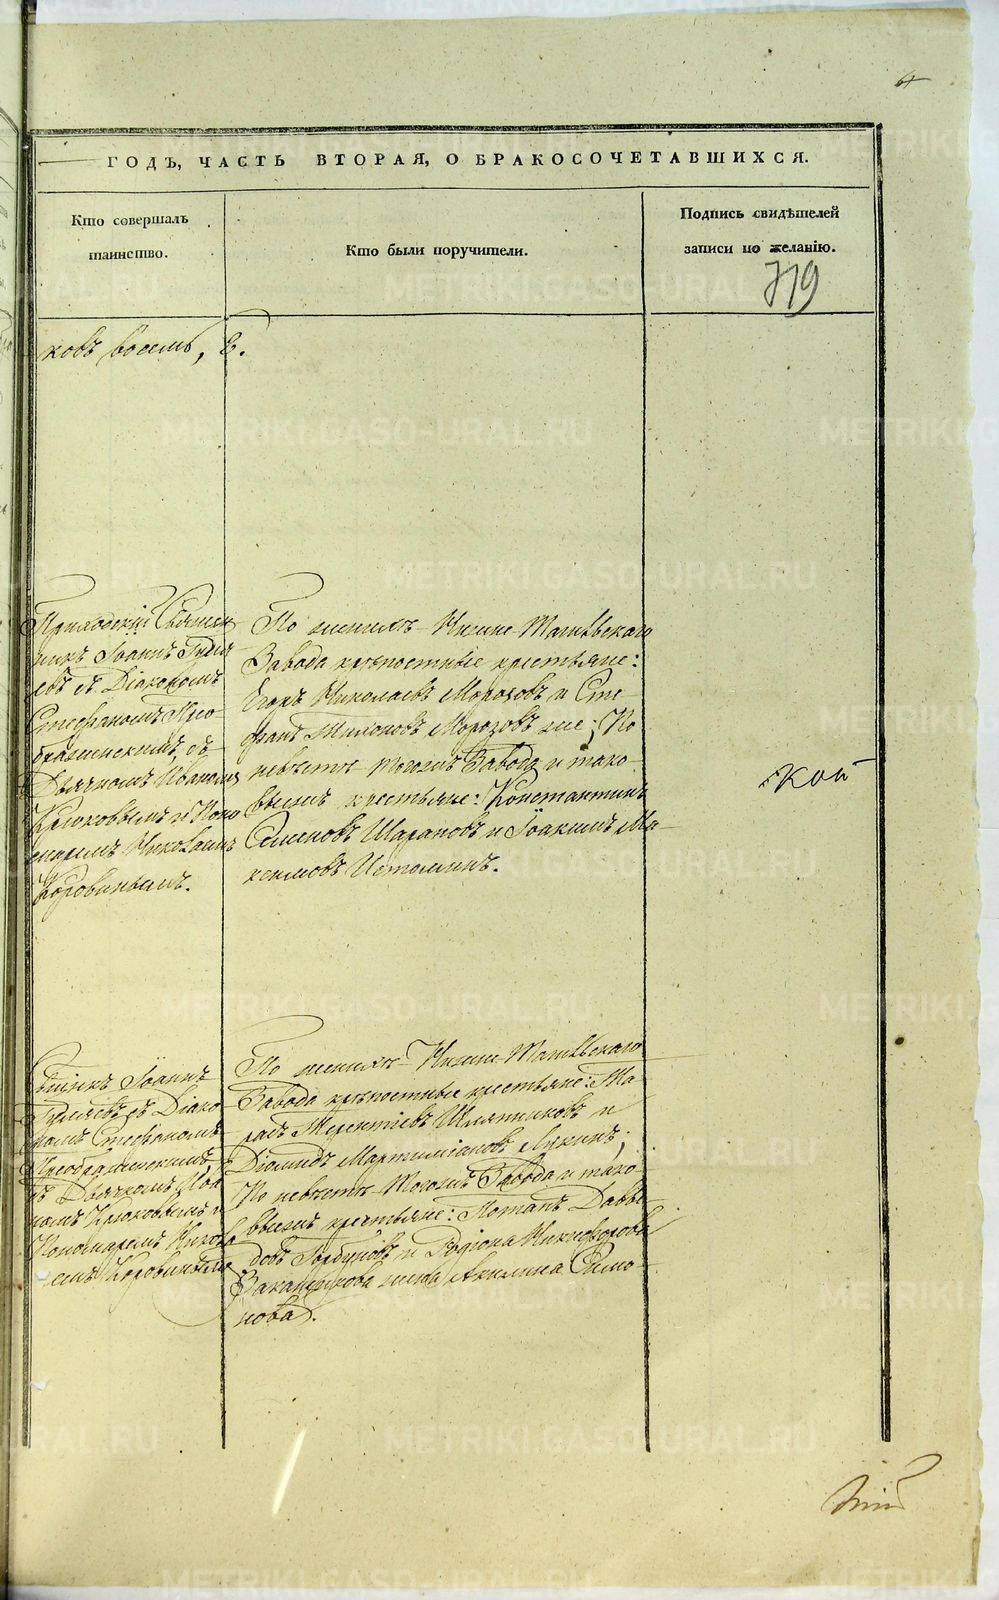 ГОДЪ, ЧАСТЬ ВТОРАЯ, О БРАКОСОЧЕТАВШИХСЯ.
Кто совершалъ
таинство.
Кто были поручители.
Подпись свидѣтелей
записи по желанію.
719
ковъ восемь, 8.
Приходскій Священ
никъ Іоаннъ Гуляе
евъ съ Діакономъ
Стефаномъ Прео-
браженскимъ, съ
Дьячкомъ Иваномъ
Крюковымъ и Поно
маремъ Николаемъ
Коровинымъ.
По женихѣ Нижне-Тагильскаго
Завода крѣпостные крестьяне:
Егоръ Николаевъ Морозовъ и Сте-
фанъ Морозовъ же; По
невѣстѣ тогожъ Завода и тако
выежъ крестьяне: Константинъ
Семеновъ Шарановъ и Іоакимъ Ма-
ксимовъ Истоминъ.
Свщнкъ Іоаннъ
Гуляевъ съ Діако-
номъ Стефаномъ
Преображенскимъ,
съ Дьячкомъ Ива
номъ Крюковымъ и
Пономаремъ Никола
емъ Коровинымъ
По женихѣ Нижне-Тагильскаго
Завода крѣпостные крестьяне:
Терентіевъ Шляпниковъ и
Діомидъ Мартиміановъ Лукинъ;
По невѣстѣ тогожъ Завода и тако
выежъ крестьяне: Потапъ Давы-
довъ Горбуновъ и Родіона Никифорова
жена Акилина Симо-
нова.